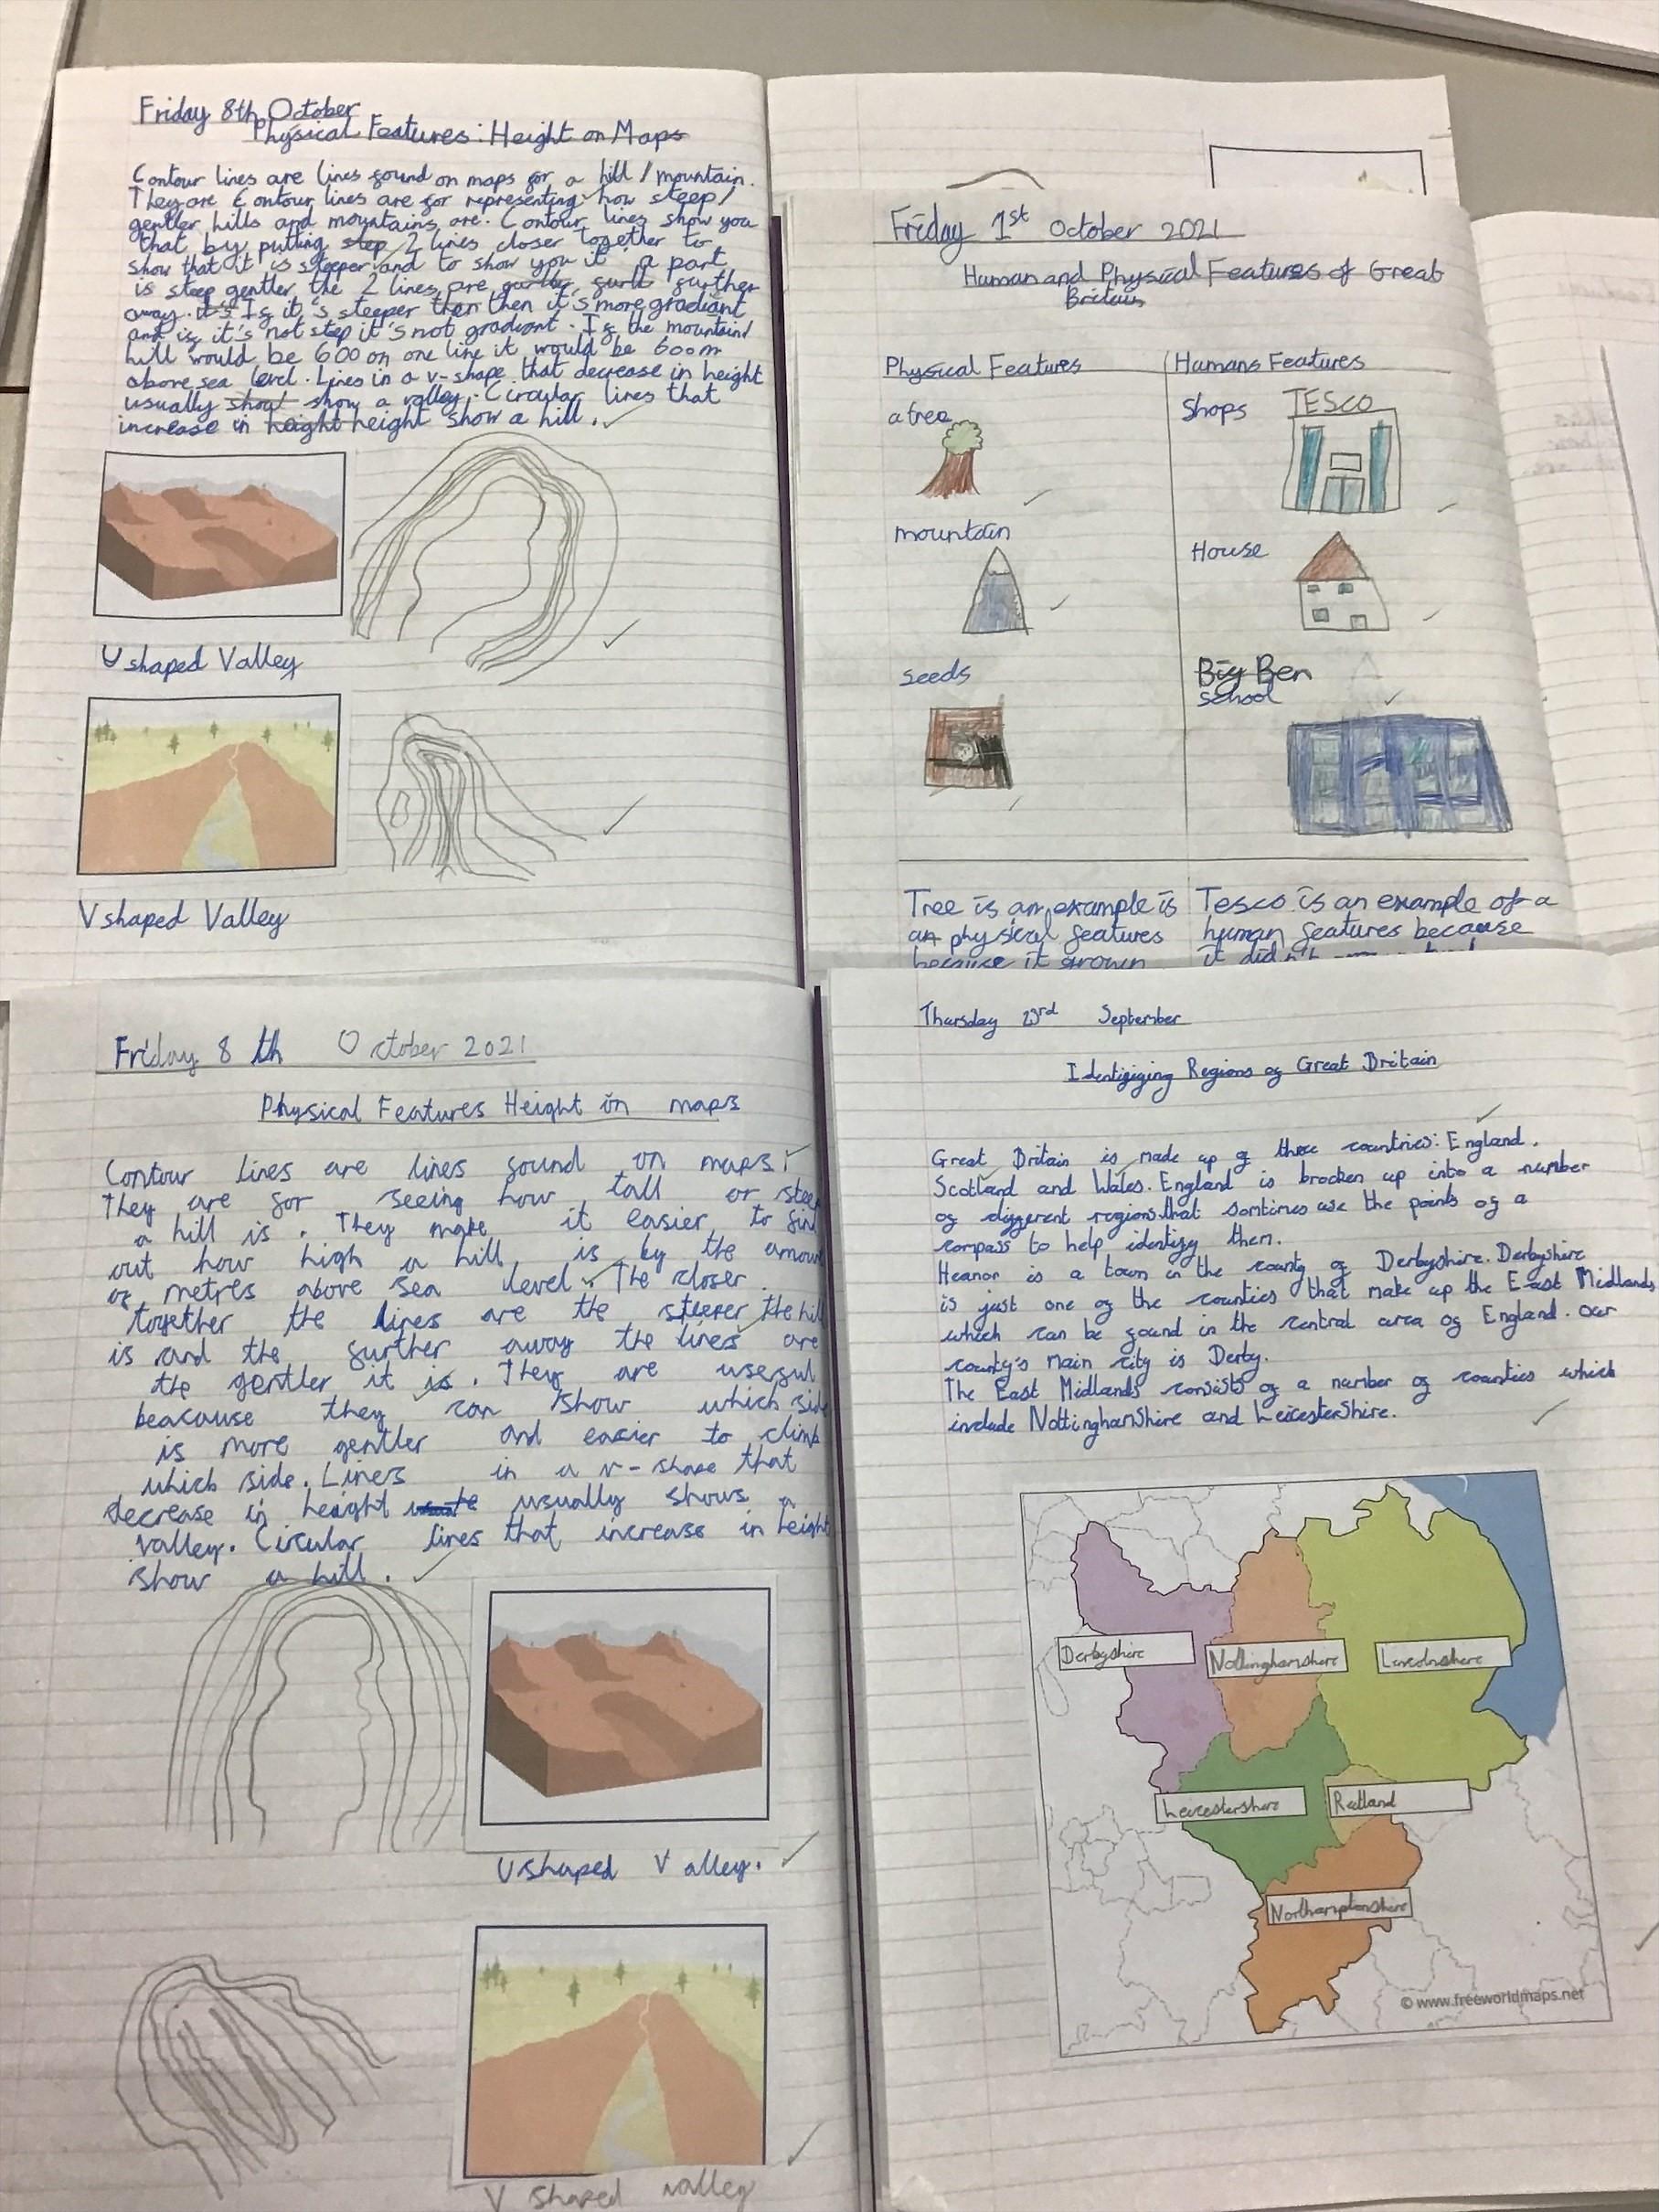 Friday 8th October
Physical Features: Height on Maps
Contour lines are lines found on maps for a hill / mountain.
They are Contour lines are for representing how steep/
gentler hills and mountains are. Contour lines show you
that by putting step 2 lines closer together to
show that it is steeper and to show you it a part
is steep gentler the 2 lines are further
away. it's If it's steeper then then it's more gradiant
and if it's not step it's not gradiant. If the mountain/
hill would be 600 on one line it would be 600m
above sea level. Lines in a v-shape that decrease in height
usually show a valley. Circular lines that
increase in height height show a hill.
U shaped Valley
V shaped Valley
Friday 1st October 2021
Human and Physical Features of Great
Britain
Physical Features
Humans Features
a tree
Shops
TESCO
mountain
House
seeds
Big Ben
school
Tree is an example is
an physical features
because it grown
Tesco is an example of a
human features because
it didn't
Friday 8 th October 2021
Physical Features Height in maps
Contour lines are lines found on maps.
They are for seeing how tall or stee
a hill is. They make it easier to fin
out how high a hill is by the amoun
of metres above sea level. The closer
together the lines are the steeper the hill
is and the further away the lines are
the gentler it is. They are useful
beacause they can show which side
is more gentler and easier to climb
which side. Lines in a v-shape that
decrease in height usually shows a
valley. Circular lines that increase in height
show a hill.
U shaped Valley.
V shaped valley
Thursday 23rd September
Identifiying Regions of Great Britain
Great Britain is made up of three countries: England,
Scotland and Wales. England is brocken up into a number
of different regions that somtimes use the points of a
compass to help identify them.
Heanor is a town in the county of Derbyshire. Derbyshire
is just one of the counties that make up the East Midlands
which can be found in the central area of England. our
county's main city is Derby.
The East Midlands consists of a number of counties which
include Nottinghamshire and Leicestershire.
Derbyshire
Nottinghamshire
Lincolnshire
Leicestershire
Rutland
Northamptonshire
© www.freeworldmaps.net